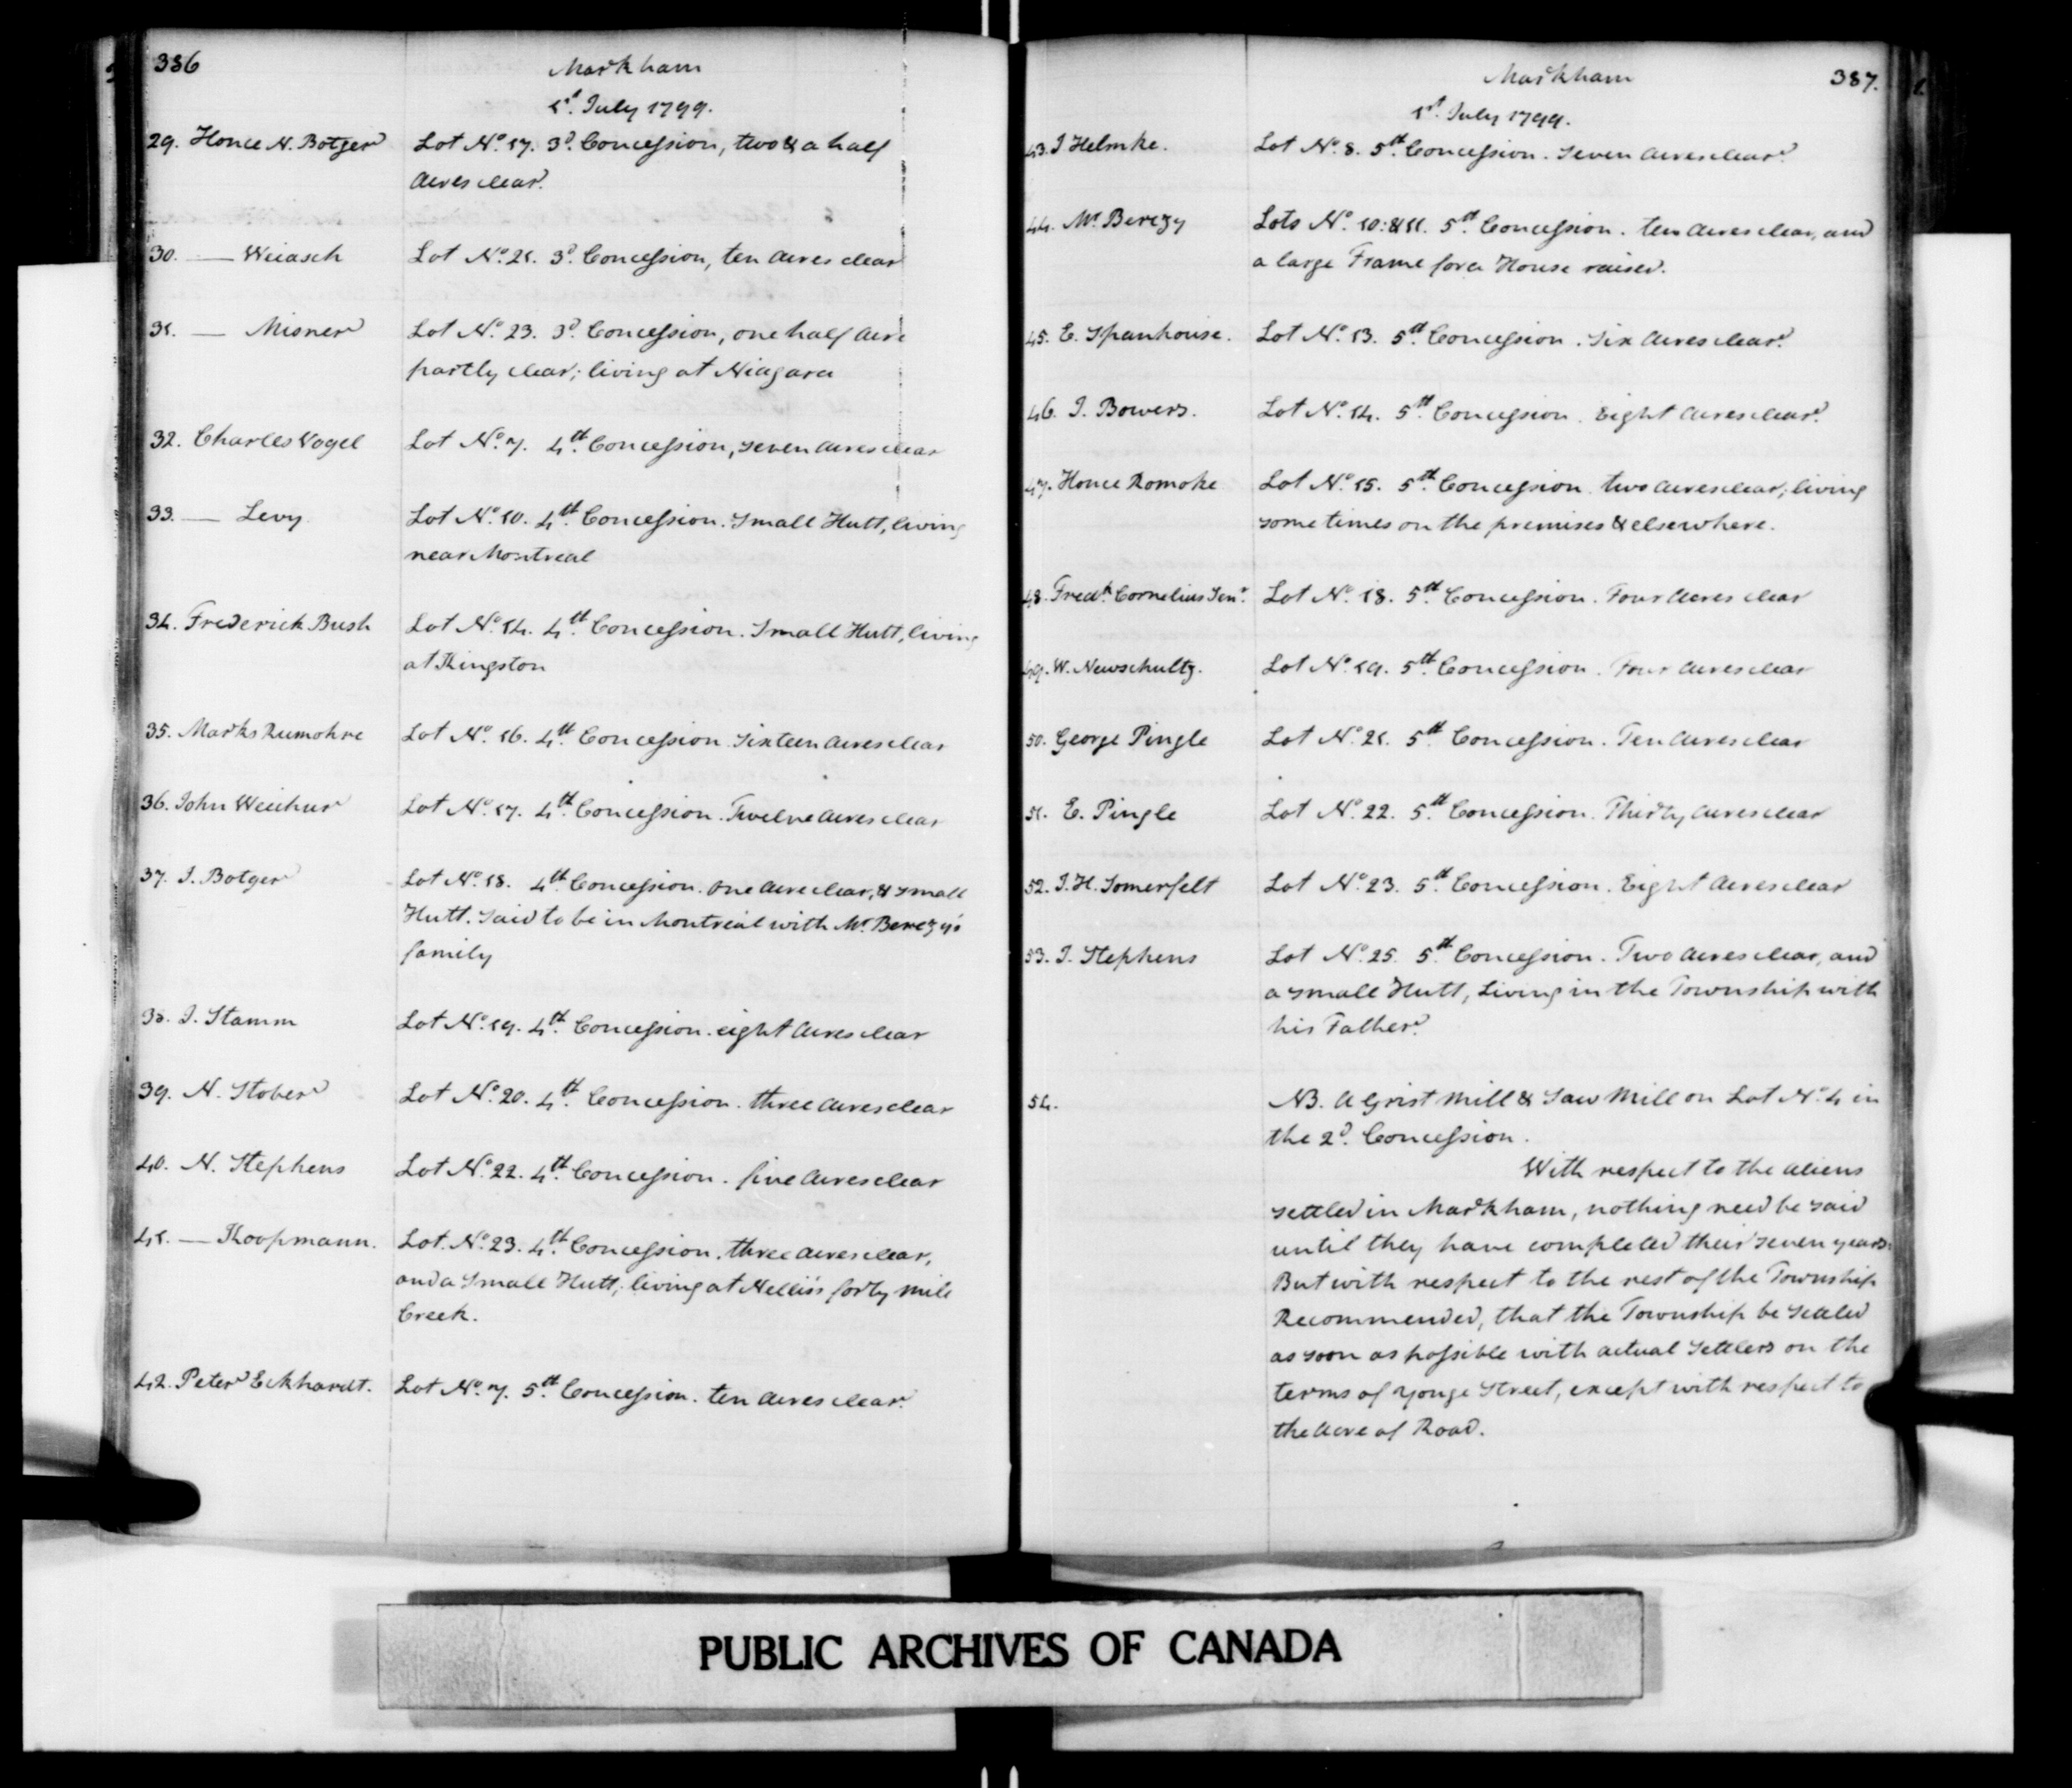 386
Markham
1st. July 1799.
29. Honce N. Botger Lot No. 17. 3d. Concession, two & a half
Acres clear.
30. — Weiasch Lot No. 21. 3d. Concession, ten Acres clear
31. — Misner Lot No. 23. 3d. Concession, one half Acre
partly clear; living at Niagara
32. Charles Vogel Lot No. 7. 4th. Concession, seven Acres clear
33. — Levy Lot No. 10. 4th. Concession. Small Hutt, living
near Montreal
34. Frederick Bush Lot No. 14. 4th. Concession. Small Hutt, living
at Kingston
35. Marks Rumohre Lot No. 16. 4th. Concession. Sixteen Acres clear
36. John Weichur Lot No. 17. 4th. Concession. Twelve Acres clear
37. I. Botger Lot No. 18. 4th. Concession. One Acre clear, & small
Hutt. Said to be in Montreal with Mr. Berczy's
family
38. I. Stamm Lot No. 19. 4th. Concession. eight Acres clear
39. N. Stober Lot No. 20. 4th. Concession. three Acres clear
40. N. Stephens Lot No. 22. 4th. Concession. five Acres clear
41. — Koopmann. Lot. No. 23. 4th. Concession. three Acres clear,
and a Small Hutt; living at Nellis's forty mile
Creek.
42. Peter Eckhardt. Lot No. 7. 5th. Concession. ten Acres clear.
Markham 387.
1st. July 1799.
43. I Helmke. Lot No. 8. 5th. Concession. Seven Acres clear.
44. Mr. Berczy Lots No. 10: & 11. 5th. Concession. ten Acres clear, and
a large Frame for a House raised.
45. E. Spanhouse. Lot No. 13. 5th. Concession. Six Acres clear.
46. I. Bowers. Lot No. 14. 5th. Concession. Eight Acres clear.
47. Honce Romoke Lot No. 15. 5th. Concession. two Acres clear; living
sometimes on the premises & elsewhere.
48. Fredk. Cornelius Senr. Lot No. 18. 5th. Concession. Four Acres clear
49. W. Newschultz. Lot No. 19. 5th. Concession. Four Acres clear
50. George Pingle Lot No. 21. 5th. Concession. Ten Acres clear
51. E. Pingle Lot No. 22. 5th. Concession. Thirty Acres clear
52. I. H. Somerfelt Lot No. 23. 5th. Concession. Eight Acres clear
53. I. Stephens Lot No. 25. 5th. Concession. Two Acres clear, and
a small Hutt, Living in the Township with
his Father.
54. NB. A Grist Mill & Saw Mill on Lot No. 4 in
the 2d. Concession.
With respect to the aliens
settled in Markham, nothing need be said
until they have completed their seven years.
But with respect to the rest of the Township
Recommended, that the Township be settled
as soon as possible with actual Settlers on the
terms of Yonge Street, except with respect to
the Acre of Road.
PUBLIC ARCHIVES OF CANADA